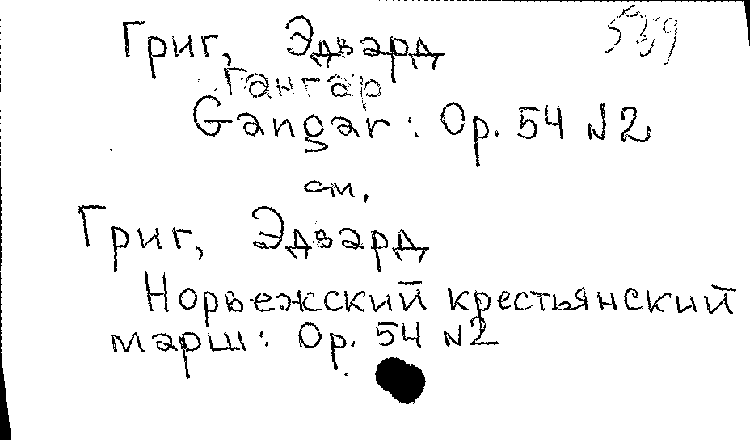 Григ, Эдвард
Гангар
Gangar: Op. 54 N2
см.
Григ, Эдвард
Норвежский крестьянский
марш: Op. 54 N2